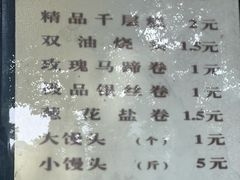 精品千层 2元
双油烧 1.5元
玫瑰马蹄卷 1元
品银丝卷 1元
花盐卷 1.5元
大馒头 (个) 1元
小馒头 (斤) 5元